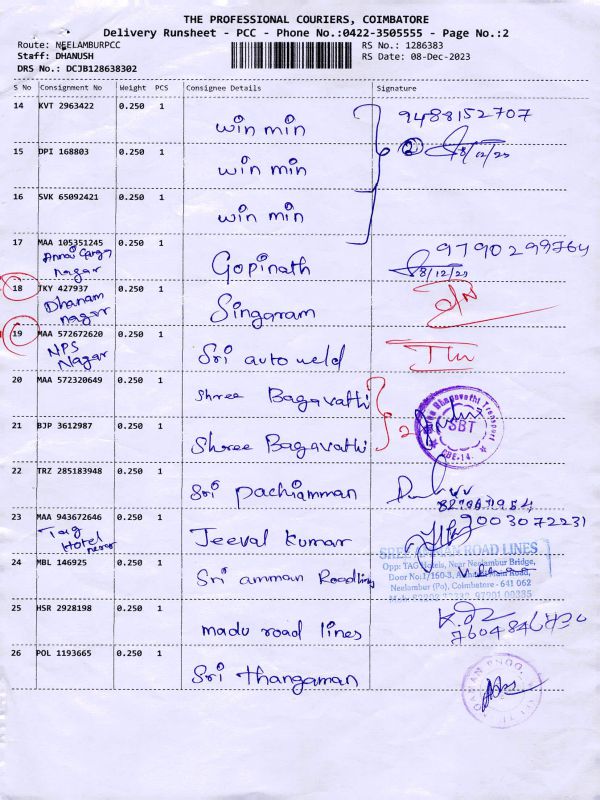 THE PROFESSIONAL COURIERS, COIMBATORE
Delivery Runsheet - PCC - Phone No.:0422-3505555 - Page No.:2
Route: NEELAMBURPCC
RS No.: 1286383
Staff: DHANUSH
RS Date: 08-Dec-2023
DRS No.: DCJB128638302
S No Consignment No Weight PCS Consignee Details Signature
14 KVT 2963422 0.250 1 win min 9488152707
15 DPI 168803 0.250 1 win min 8/12/23
16 SVK 65092421 0.250 1 win min
17 MAA 105351245 0.250 1 Gopinath 9790299764
Nagar 8/12/23
18 TKY 427937 0.250 1 Singaram
Dhanam
nagar
19 MAA 572672620 0.250 1 Sri auto weld
NPS
Nagar
20 MAA 572320649 0.250 1 Shree Bagavathi
21 BJP 3612987 0.250 1 Shree Bagavathi 2
SBT
CBE-14.
22 TRZ 285183948 0.250 1 Sri pachiamman
23 MAA 943672646 0.250 1 Jeeval kumar 9003072231
Tag
Hotel
24 MBL 146925 0.250 1 Sri amman Roadlines
ROAD LINES
Opp: TAG Hotels, Near Neelambur Bridge,
Door No:1/160-3, Road,
Neelambur (Po), Coimbatore - 641 062
25 HSR 2928198 0.250 1 madu road lines
26 POL 1193665 0.250 1 Sri thangaman